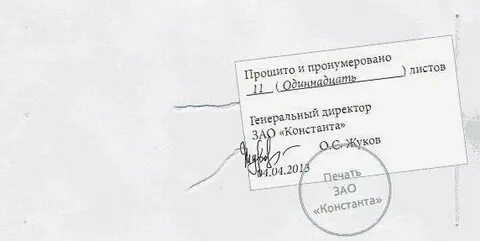 Прошито и пронумеровано
11 ( Одиннадцать ) листов
Генеральный директор
ЗАО «Константа»
О.С. Жуков
04.04.2013
Печать
ЗАО
«Константа»